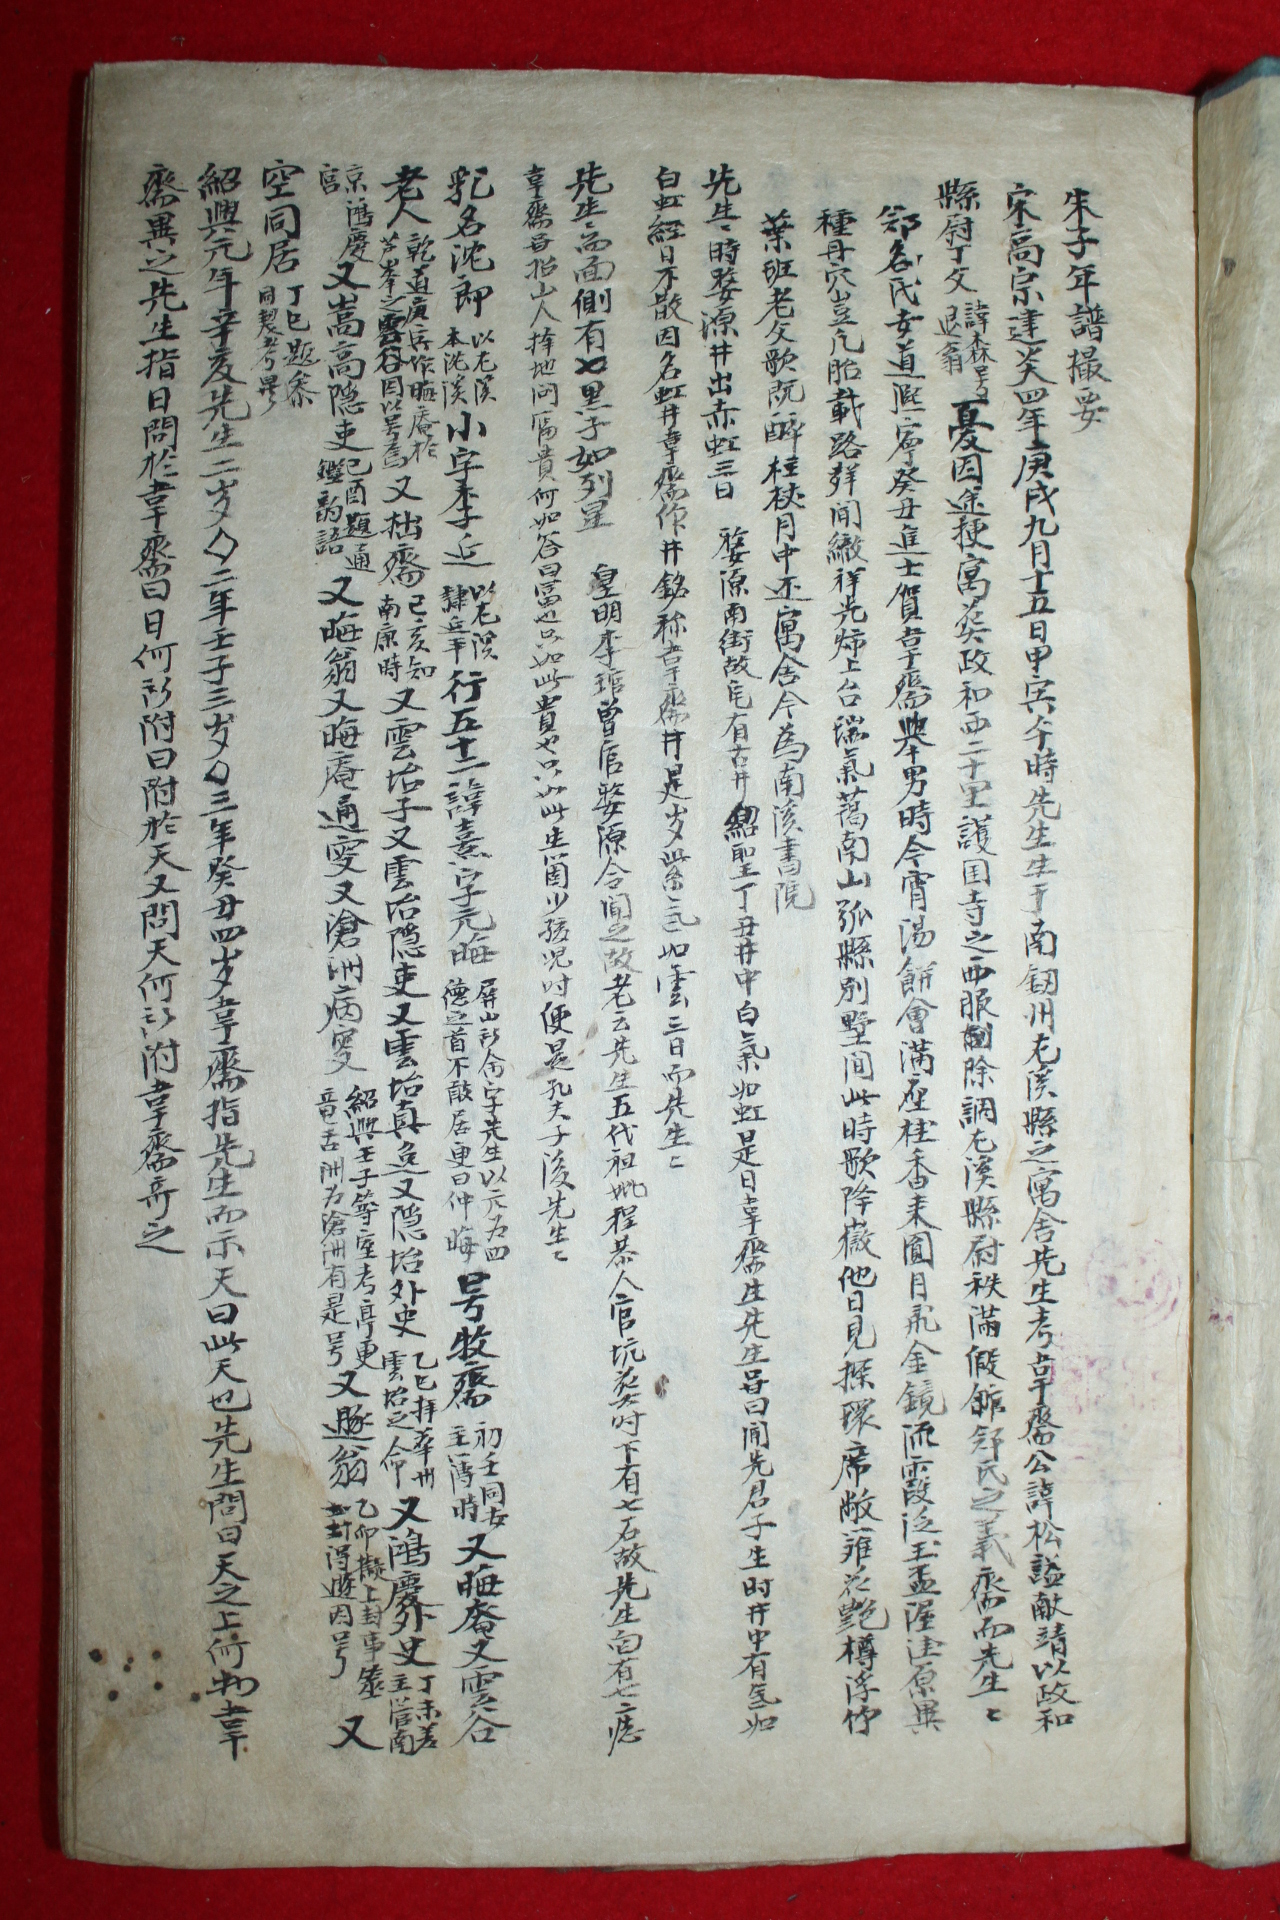 朱子年譜撮要
宋高宗建炎四年庚戌九月十五日甲寅午時先生生于南釰州尤溪縣之寓舍先生考韋齋公諱松謚献靖以政和
縣尉丁父諱森号退翁憂因途梗寓葬政和西二十里護国寺之西服除調尤溪縣尉秩滿假館鄭氏之義齋而先生生
鄭名氏女道熙寧癸丑進士賀韋齋擧男時今宵湯餠會滿座桂香来圓月飛金鏡流霞泛玉盃渥洼原異
種丹穴豈凡胎載路群聞繳祥光燭上台瑞氣藹南山弧縣別墅間此時歌降嶽他日見探環席敞羅花艶樽浮竹
葉班老父歌旣醉桂校月中还寓舍今為南溪書院
先生生時婺源井出赤虹三日 婺源南街故宅有古井紹聖丁丑井中白氣如虹是日韋齋生先生甞曰聞先君子生時井中有氣如
白虹經日不散因名虹井韋齋作井銘称韋齋井是岁紫氣如雲三日而先生生
先生生而面側有七黒子如列星 皇明李琯曽官婺源令聞之故老云先生五代祖妣程恭人官坑葬时下有七石故先生面有七痣
韋齋甞招山人擇地问富貴何如答曰富也只如此貴也只如此生箇少孩児时便是孔夫子後先生生
乳名沈郎以尤溪本沈溪小字季延以尤溪隷延平行五十二諱熹字元晦屛山所命字先生以元為四德之首不敢居更曰仲晦号牧齋初任同安主薄時又晦菴又雲谷
老人乾道庚寅作晦菴於芦峯之雲谷因以号焉又拙齋己亥知南康時又雲坮子又雲坮隠吏又雲坮真逸又隠坮外史乙巳拝華州雲坮之命又鴻慶外史丁未差主管南
京鴻慶宮又嵩高隠吏己酉題通鑑韵語又晦翁又晦菴通叟又滄洲病叟紹興壬子等室考亭更竜舌洲为滄洲有是号又遯翁乙卯擬上封事筮封得遯因号又
空同居丁巳題叅同契考異
紹興元年辛亥先生二岁〇二年壬子三岁〇三年癸丑四岁韋齋指先生而示天曰此天也先生問曰天之上何物韋
齋異之先生指日問於韋齋曰日何所附曰附於天又問天何所附韋齋奇之